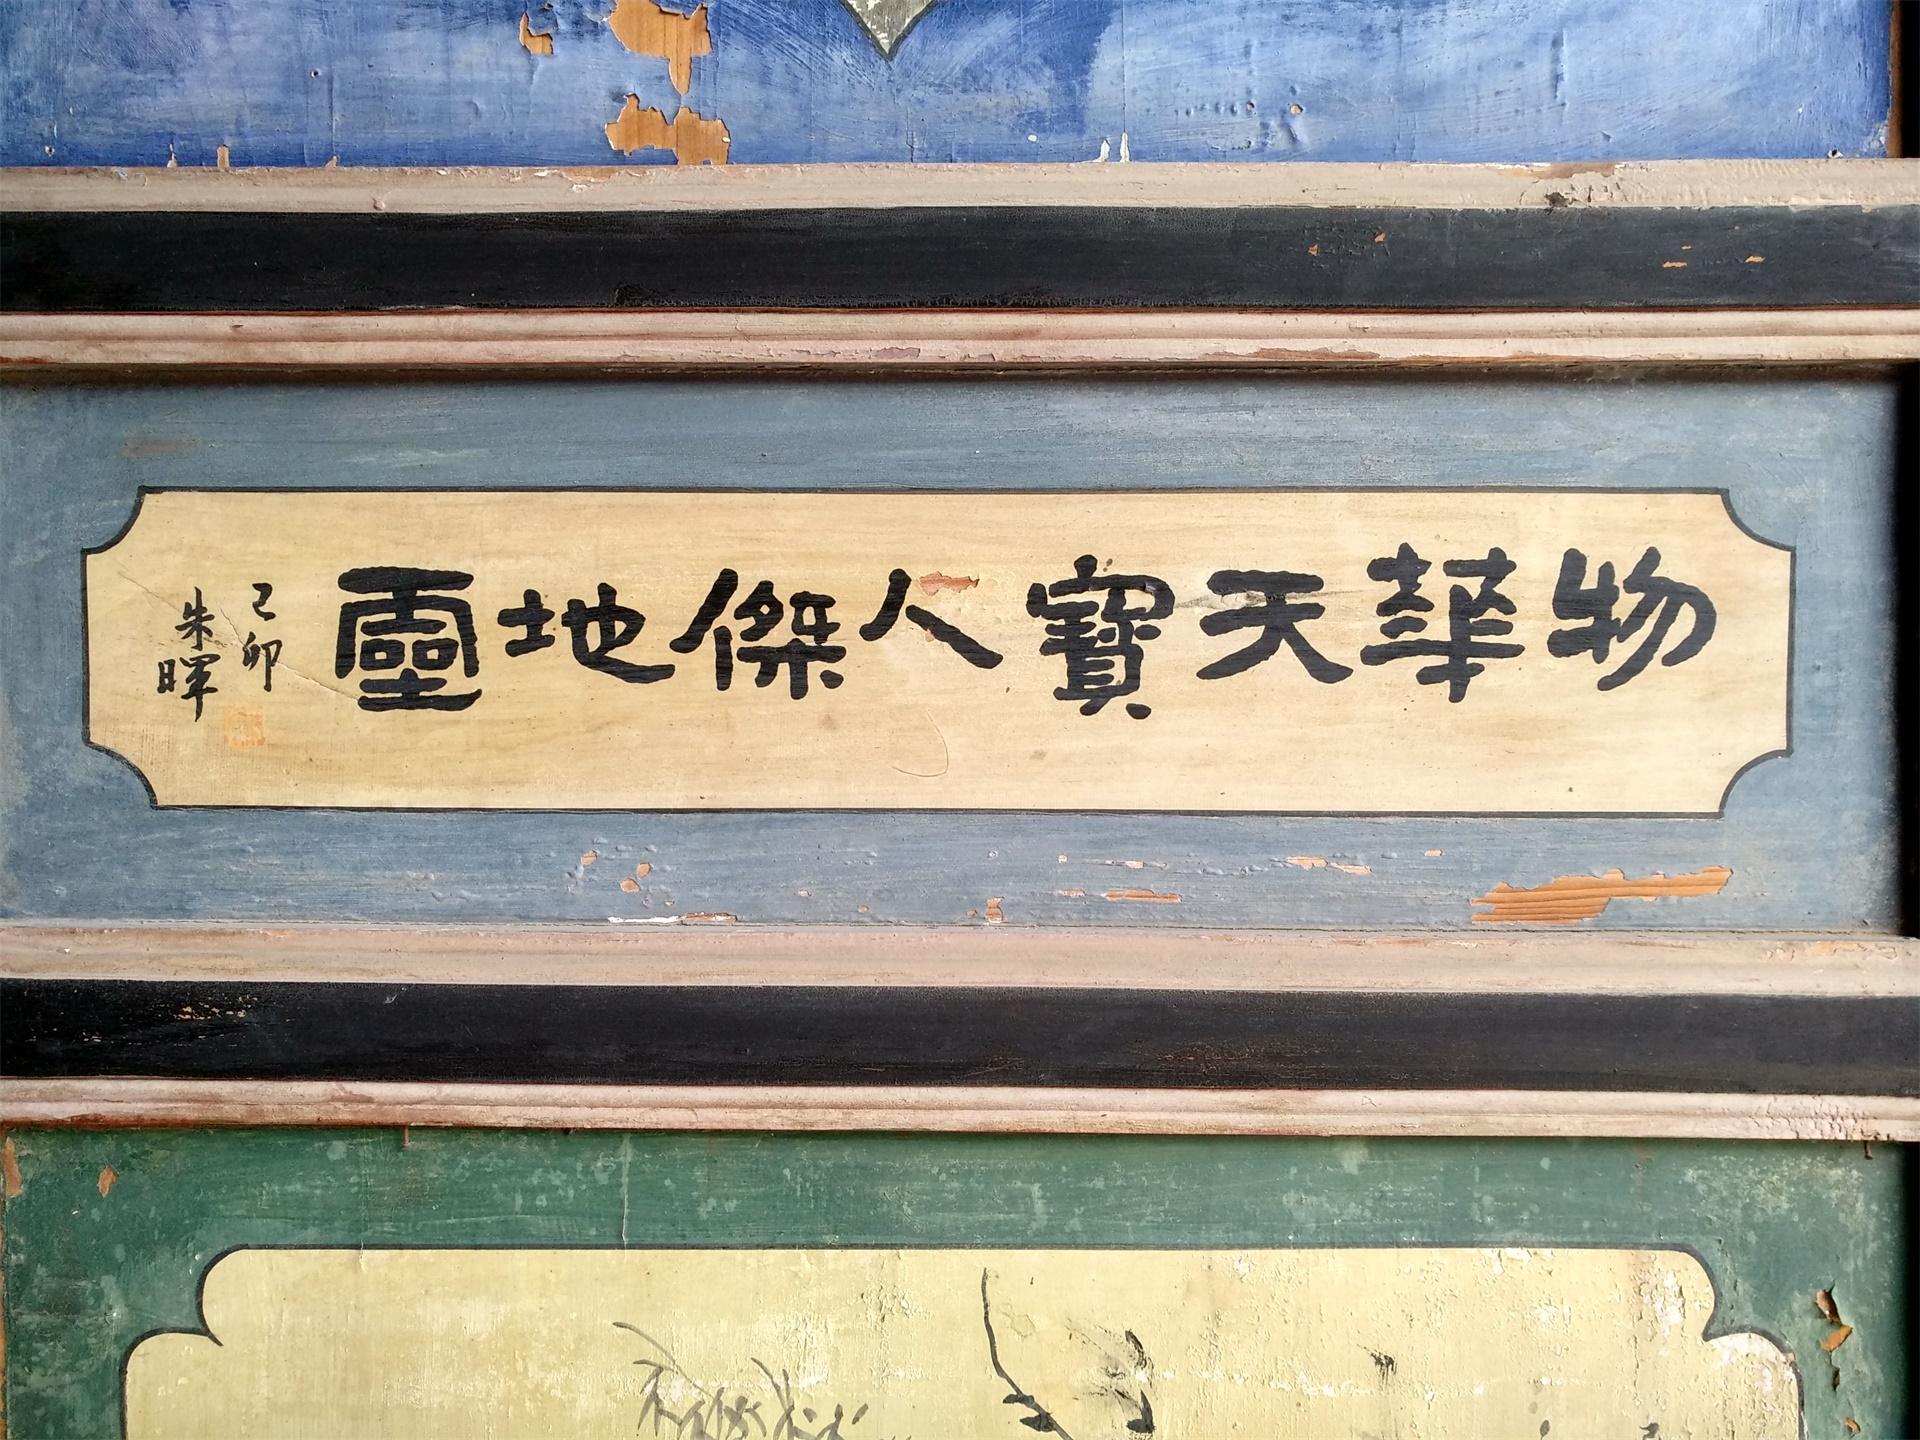 物華天寶人傑地靈
己卯
朱暉